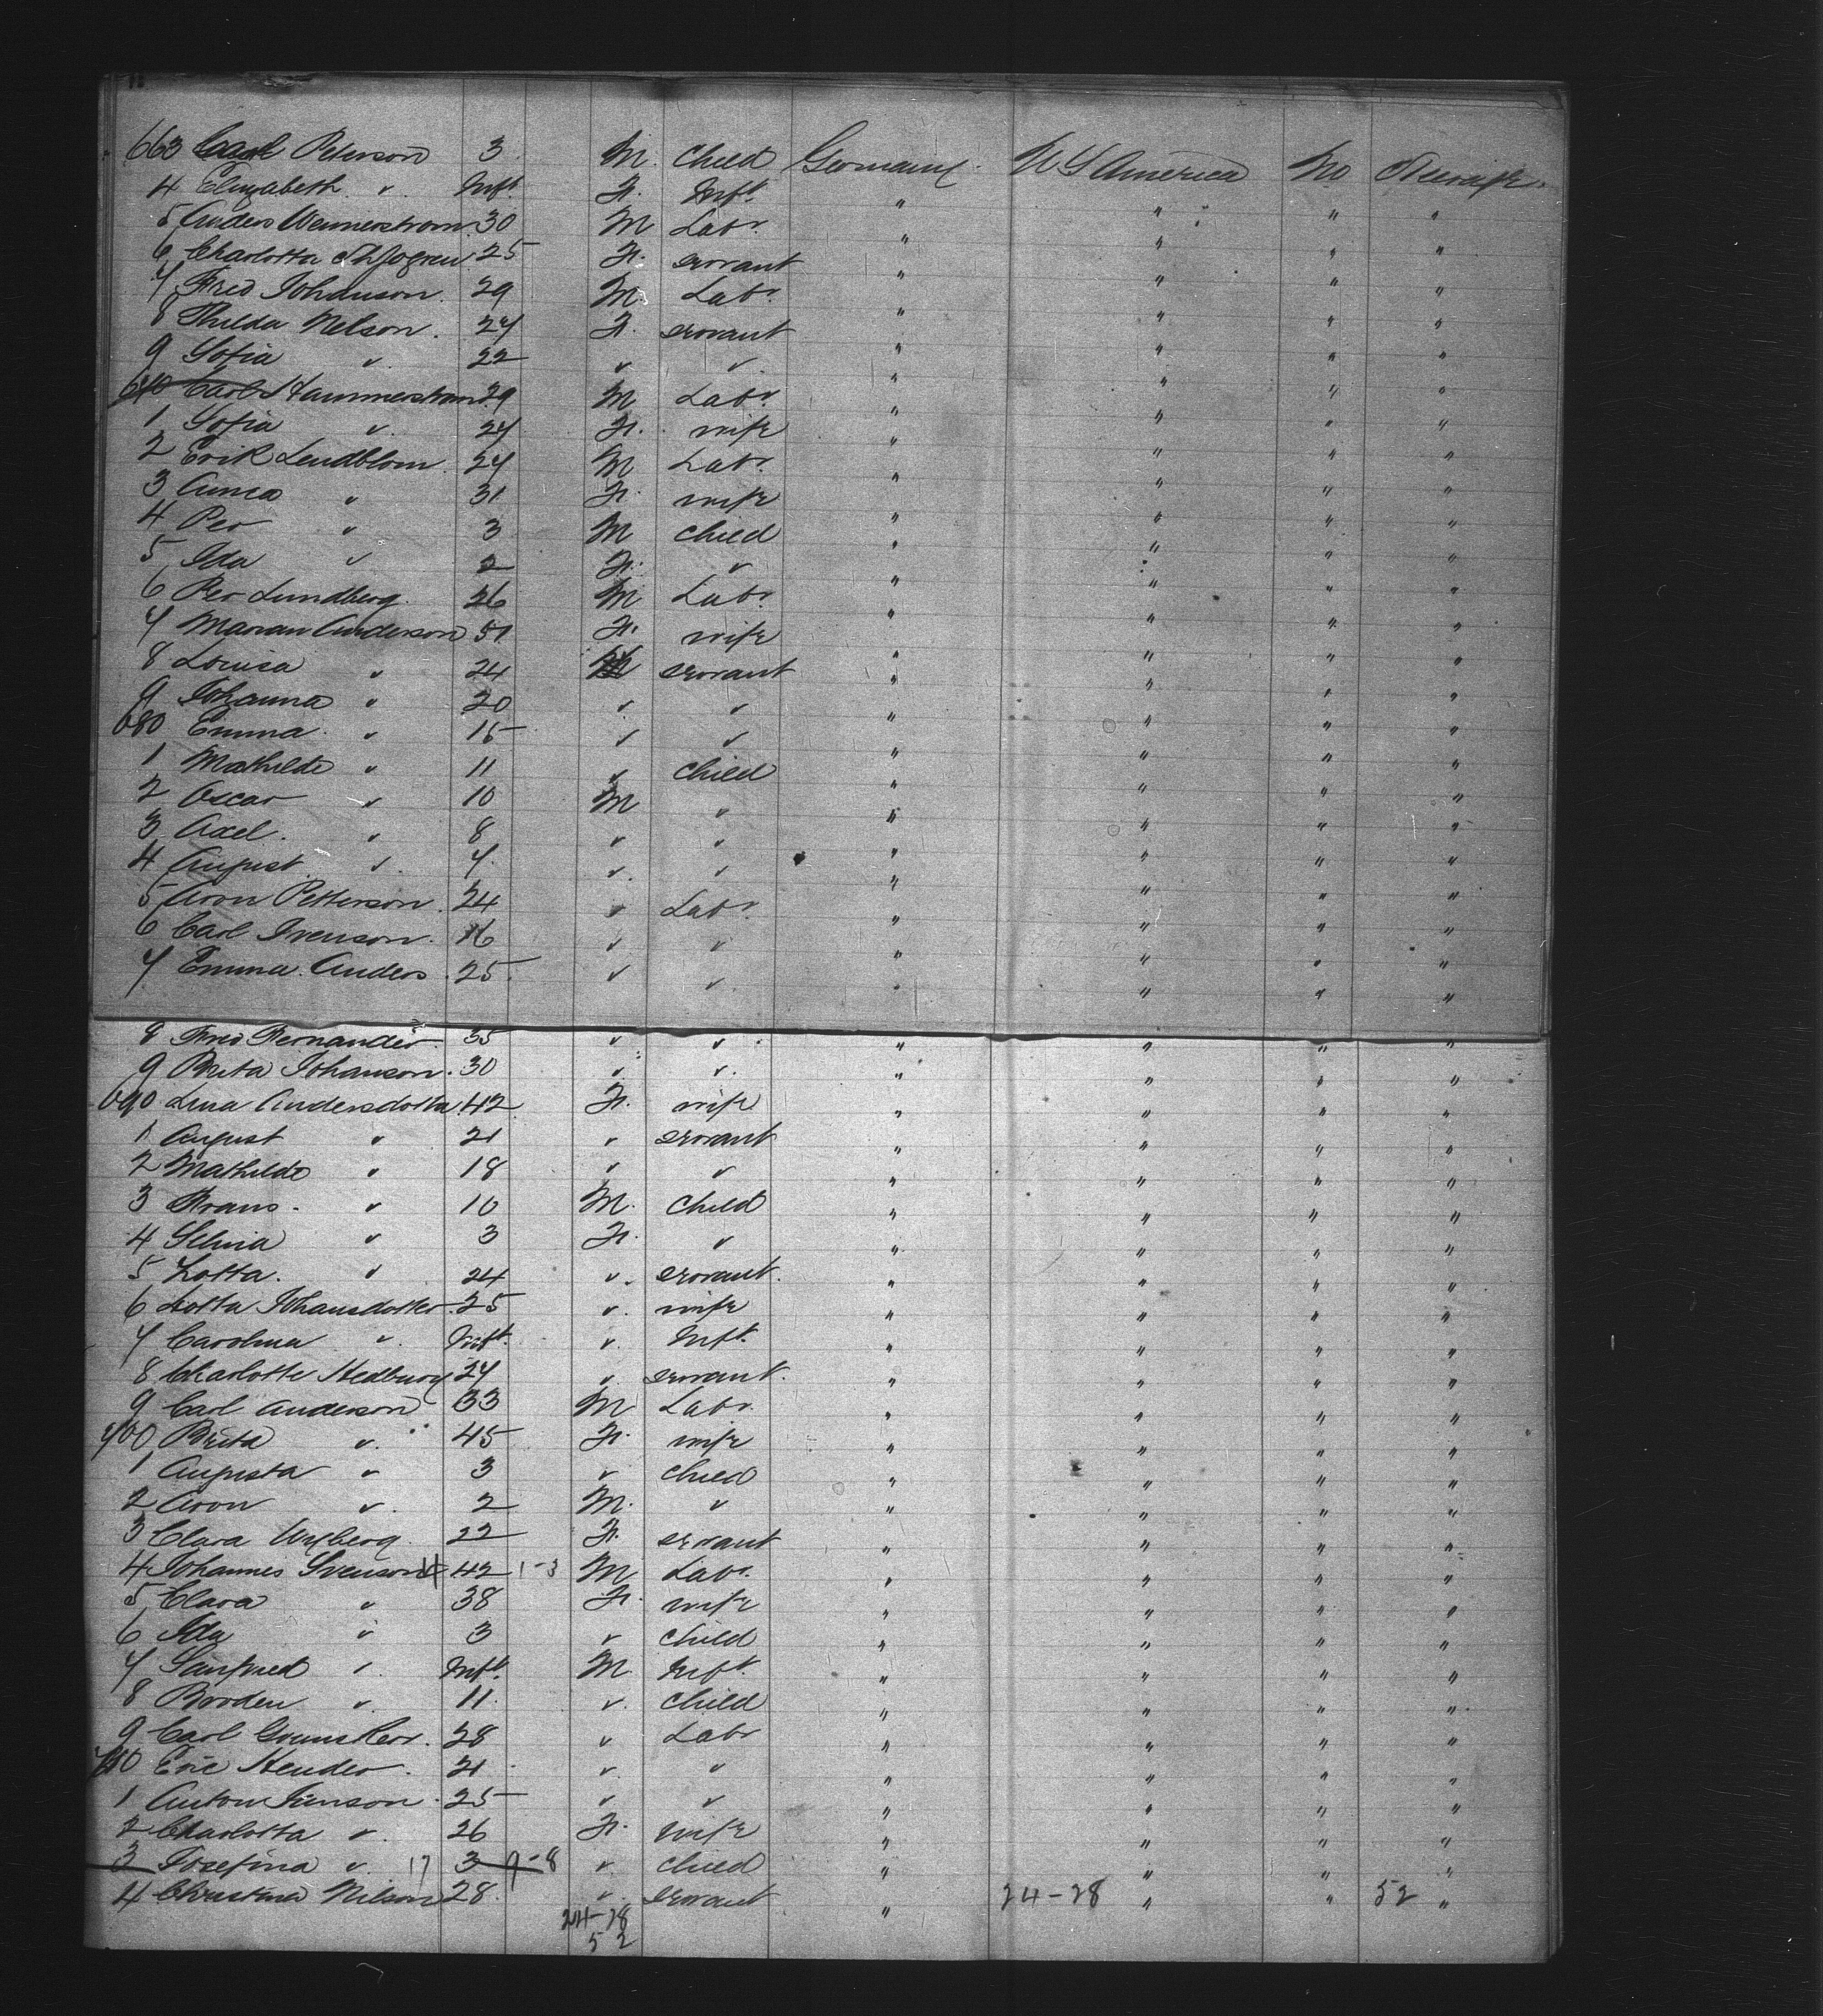 663 Carl Peterson 3 M. Child Germany. U S America No Steerage.
4 Elizabeth " Inft. F. Inft. " " " "
5 Anders Wennerstrom 30 M Labr. " " " "
6 Charlotta 25 F. servant " " " "
7 Fred Johanson. 29 M. Labr. " " " "
8 Thilda Nelson. 27 F. servant " " " "
9 Sofia " 22 " " " " " "
670 Carl Hammerstrom 29 M Labr " " " "
1 Sofia " 27 F. wife " " " "
2 Erik Lendblom. 27 M Labr. " " " "
3 Anna " 31 F. wife " " " "
4 Per " 3 M Child " " " "
5 Ida " 2 F. " " " " "
6 Per Lundberg. 26 M Labr. " " " "
7 Marian Anderson 51 F. wife " " " "
8 Louisa " 24 servant " " " "
9 Johanna " 20 " " " " " "
680 Emma. " 15 " " " " " "
1 Mathilde " 11 " Child " " " "
2 Oscar " 10 M " " " " "
3 Axel. " 8 " " " " " "
4 August. " 7. " " " " " "
5 Aron Petterson. 24 " Labr. " " " "
6 Carl Svenson. 16 " " " " " "
7 Emma. Anders. 25. " " " " " "
8 Fred Fernander. 35 " " " " " "
9 Brita Johanson. 30 " " " " " "
690 Lena Andersdotta 42 F. wife " " " "
1 August " 21 " servant " " " "
2 Mathilde " 18 " " " " " "
3 Frans. " 10 M. Child " " " "
4 Selma " 3 F. " " " " "
5 Lotta. " 24 " servant. " " " "
6 Lotta Johansdotter. 25 " wife " " " "
7 Carolina " Inft. " Inft. " " " "
8 Charlotte Hedburg 27 " servant. " " " "
9 Carl Anderson 33 M Labr. " " " "
700 Brita " 45 F. wife " " " "
1 Augusta " 3 " Child " " " "
2 Aron " 2 M. " " " " "
3 Clara 22 F. servant " " " "
4 Johannes Svenson 42 1-3 M Labr. " " " "
5 Clara " 38 F. wife " " " "
6 Ida " 3 " Child " " " "
7 Sanfred " Inft. M Inft. " " " "
8 Broden " 11. " Child " " " "
9 Carl 28 " Labr " " " "
710 Eric Hender. 21. " " " " " "
1 Anton Janson. 25 " " " " " "
2 Charlotta " 26 F. wife " " " "
3 Josefina " 17 3 9-8 " Child " " " "
4 Christina Nilson 28. " servant " 24-28 " " 52 "
24-28
52